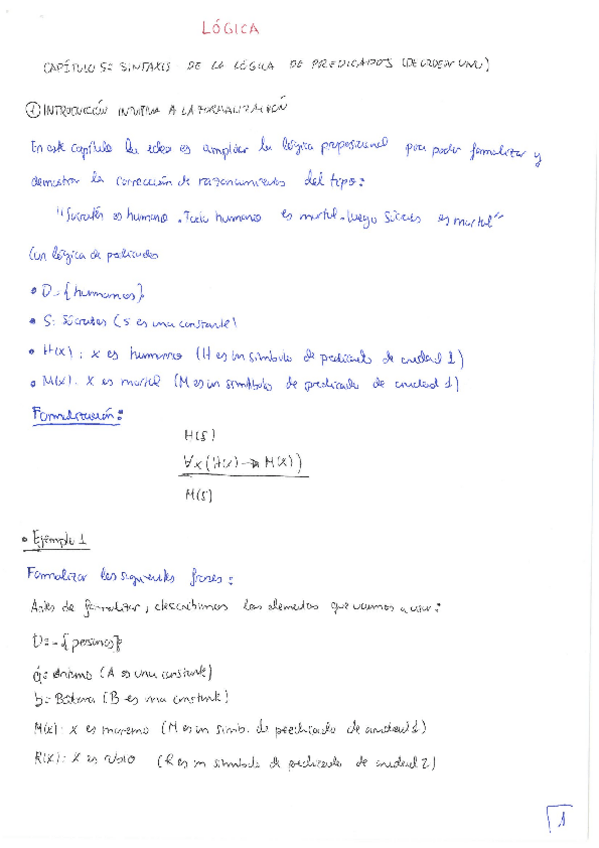 LÓGICA
CAPÍTULO 5: SINTAXIS DE LA LÓGICA DE PREDICADOS (DE ORDEN UNO)
① INTRODUCCIÓN INTUITIVA A LA FORMALIZACIÓN
En este capítulo la idea es ampliar la lógica proposicional para poder formalizar y
demostrar la corrección de razonamientos del tipo:
"Sócrates es humano. Todo humano es mortal. Luego Sócrates es mortal"
Con lógica de predicados
• D={humanos}
• S: Sócrates (S es una constante)
• H(x): x es humano (H es un símbolo de predicado de aridad 1)
• M(x): x es mortal (M es un símbolo de predicado de aridad 1)
Formalización:
H(S)
∀x(H(x)→M(x))
M(S)
• Ejemplo 1
Formalizar las siguientes frases:
Antes de formalizar, describimos los elementos que vamos a usar:
D={personas}
a: (A es una constante)
b: (B es una constante)
M(x): x es moreno (M es un simb. de predicado de aridad 1)
R(x): x es rubio (R es un símbolo de predicado de aridad 2)
1